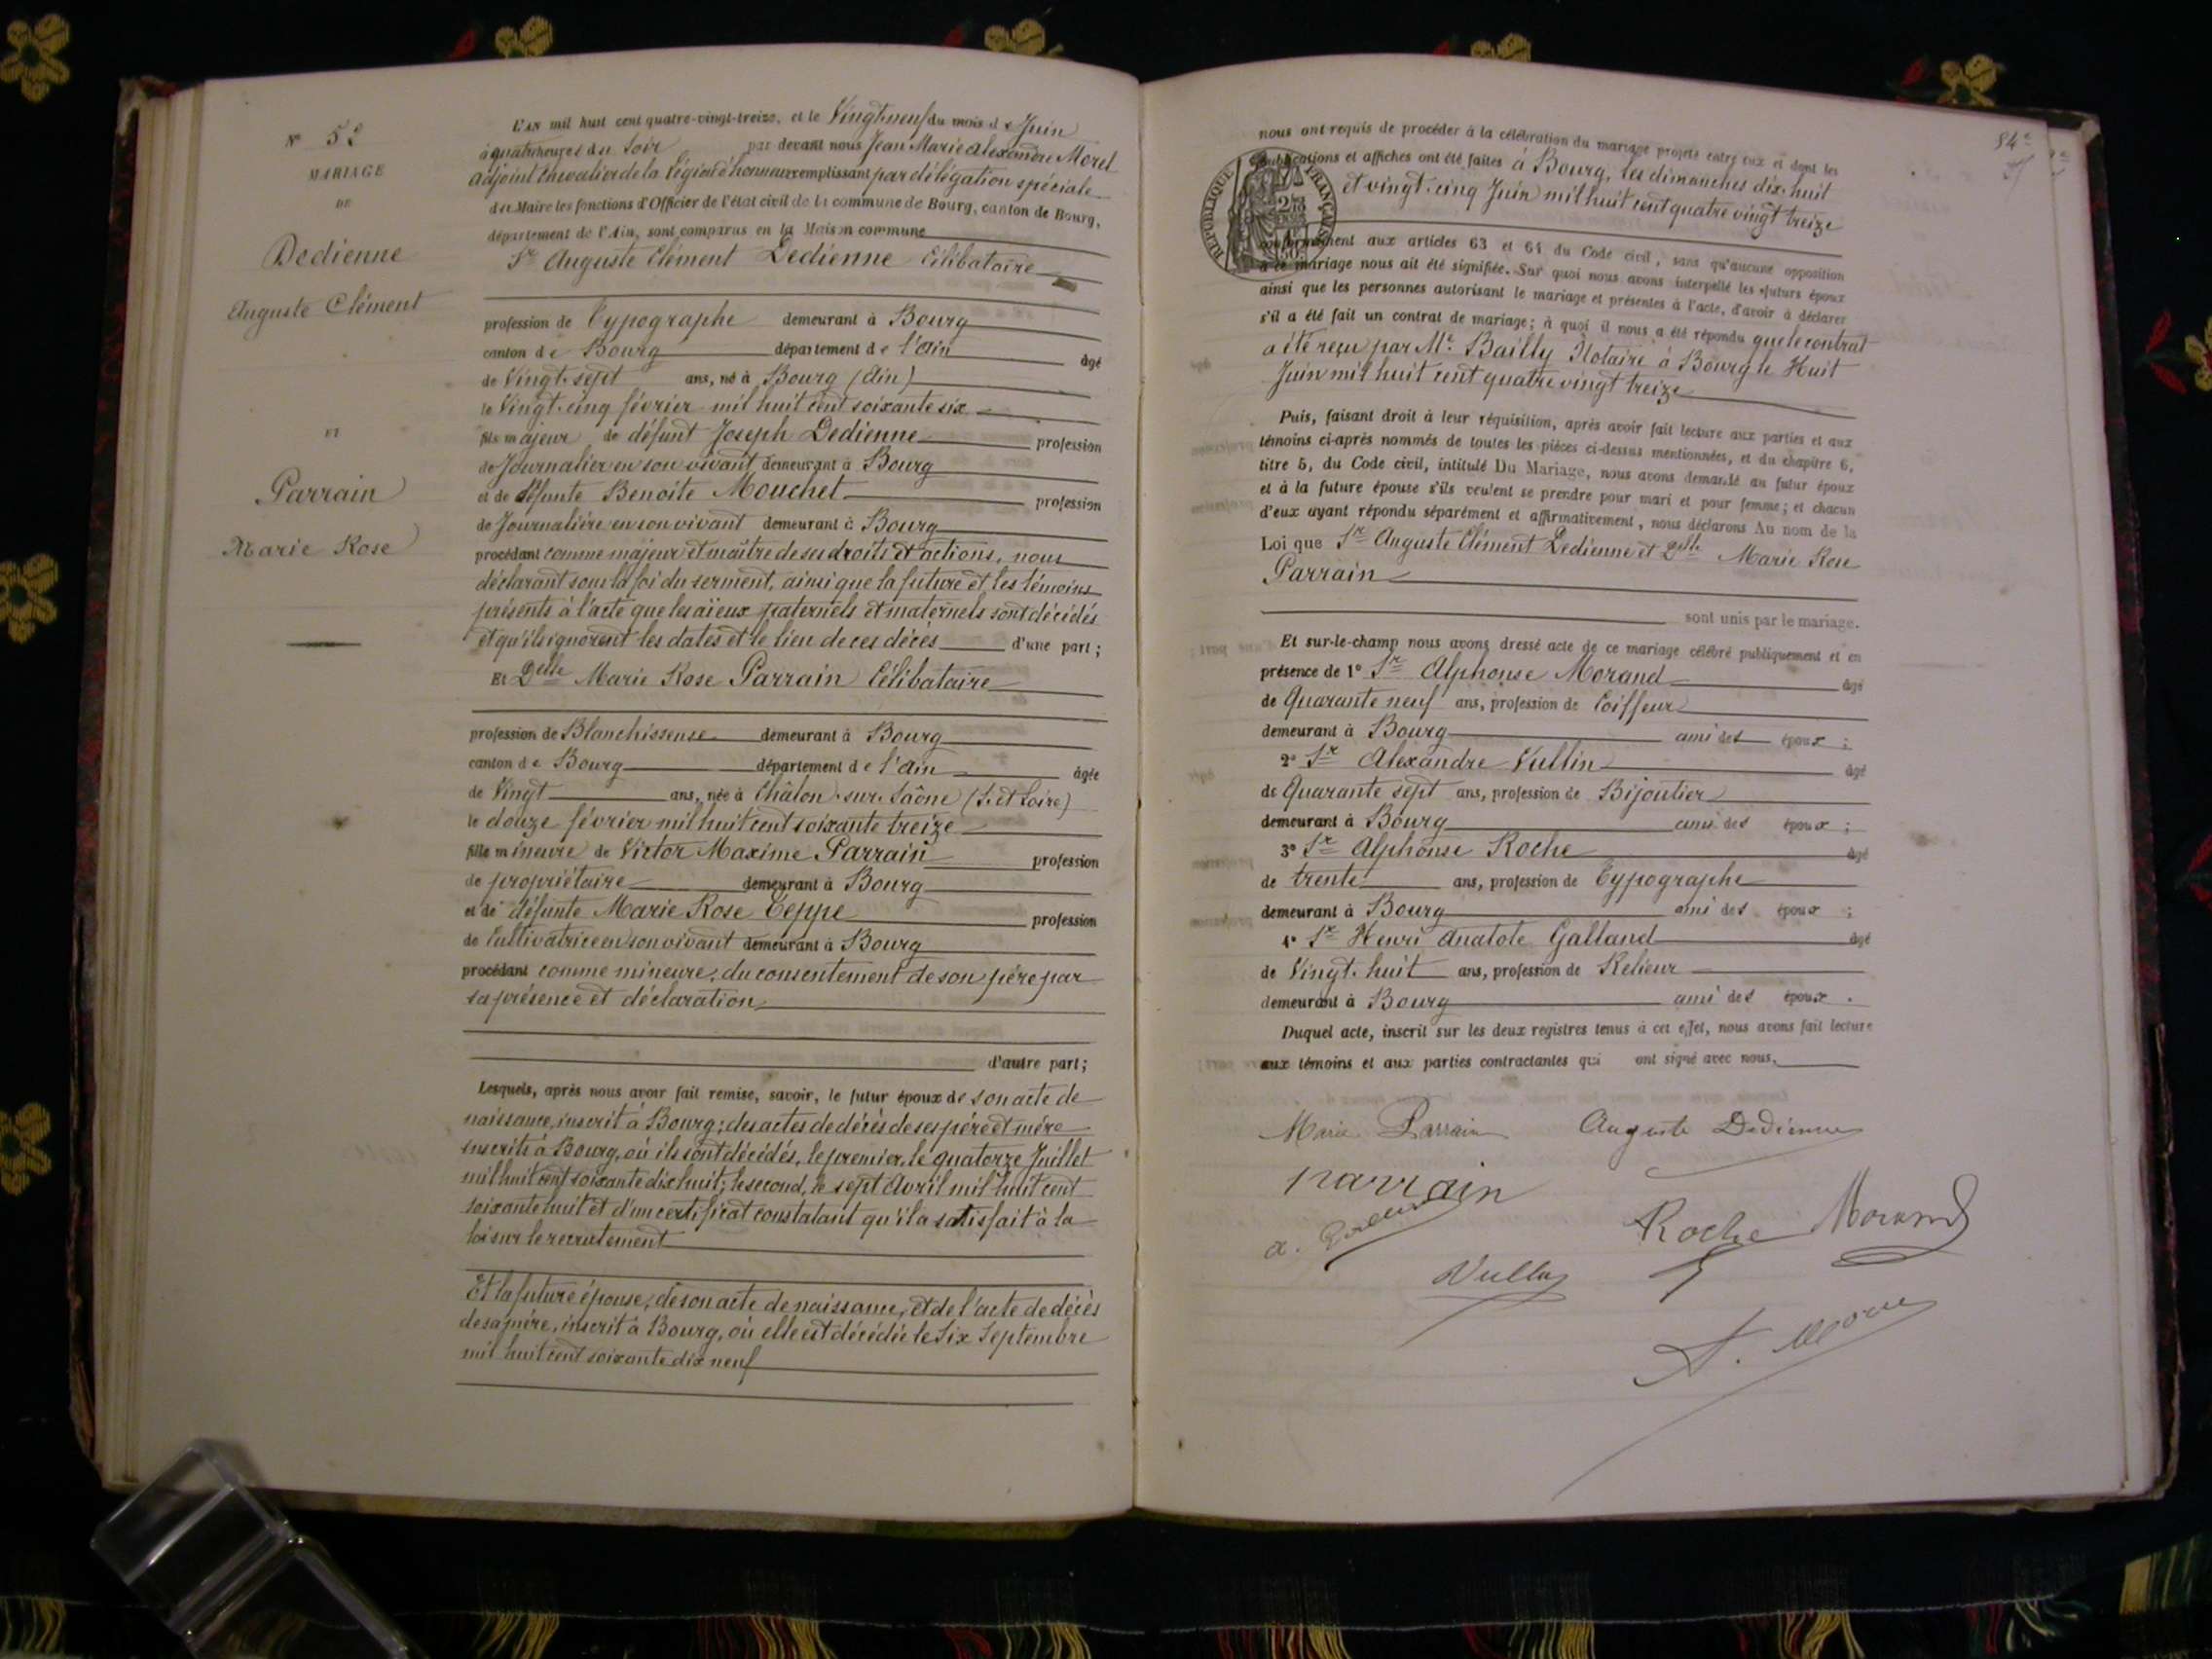 N° 52
MARIAGE
DE
Dedienne
Auguste Clément
ET
Parrain
Marie Rose
L'AN mil huit cent quatre-vingt-treize, et le Vingt-neuf du mois de Juin
à quatre heures du Soir par devant nous Jean Marie Alexandre Morel
adjoint Chevalier de la Légion d'honneur remplissant par délégation spéciale
du Maire les fonctions d'Officier de l'état civil de la commune de Bourg, canton de Bourg,
département de l'Ain, sont comparus en la Maison commune
Sr Auguste Clément Dedienne Célibataire
profession de Typographe demeurant à Bourg
canton de Bourg département de l'Ain âgé
de Vingt-sept ans, né à Bourg (Ain)
le Vingt-cinq février mil huit cent soixante six
fils majeur de défunt Joseph Dedienne profession
de Journalier en son vivant demeurant à Bourg
et de défunte Benoite Mouchet profession
de Journalière en son vivant demeurant à Bourg
procédant comme majeur et maître de ses droits et actions, nous
déclarant sous la foi du serment, ainsi que la future et les témoins
présents à l'acte que les aïeux paternels et maternels sont décédés
et qu'ils ignorent les dates et le lieu de ces décès d'une part;
Et Delle Marie Rose Parrain Célibataire
profession de Blanchisseuse demeurant à Bourg
canton de Bourg département de l'Ain âgée
de Vingt ans, née à Châlon-sur-Saône (S. et Loire)
le douze février mil huit cent soixante treize
fille mineure de Victor Maxime Parrain profession
de propriétaire demeurant à Bourg
et de défunte Marie Rose Teppe profession
de Cultivatrice en son vivant demeurant à Bourg
procédant comme mineure, du consentement de son père par
sa présence et déclaration
d'autre part;
Lesquels, après nous avoir fait remise, savoir, le futur époux de son acte de
naissance, inscrit à Bourg; des actes de décès de ses père et mère
inscrits à Bourg, où ils sont décédés, le premier, le quatorze Juillet
mil huit cent soixante dix huit; le second, le sept Avril mil huit cent
soixante huit et d'un certificat constatant qu'il a satisfait à la
loi sur le recrutement
Et la future épouse, de son acte de naissance, et de l'acte de décès
de sa mère, inscrit à Bourg, où elle est décédée le Six Septembre
mil huit cent soixante dix neuf
84e
nous ont requis de procéder à la célébration du mariage projeté entre eux et dont les
publications et affiches ont été faites à Bourg, les dimanches dix-huit
et vingt-cinq Juin mil huit cent quatre vingt treize
RÉPUBLIQUE FRANÇAISE
conformément aux articles 63 et 64 du Code civil, sans qu'aucune opposition
à ce mariage nous ait été signifiée. Sur quoi nous avons interpellé les futurs époux
ainsi que les personnes autorisant le mariage et présentes à l'acte, d'avoir à déclarer
s'il a été fait un contrat de mariage; à quoi il nous a été répondu que le contrat
a été reçu par Me Bailly Notaire à Bourg le Huit
Juin mil huit cent quatre vingt treize
Puis, faisant droit à leur réquisition, après avoir fait lecture aux parties et aux
témoins ci-après nommés de toutes les pièces ci-dessus mentionnées, et du chapitre 6,
titre 5, du Code civil, intitulé Du Mariage, nous avons demandé au futur époux
et à la future épouse s'ils veulent se prendre pour mari et pour femme; et chacun
d'eux ayant répondu séparément et affirmativement, nous déclarons Au nom de la
Loi que Sr Auguste Clément Dedienne et Delle Marie Rose
Parrain
sont unis par le mariage.
Et sur-le-champ nous avons dressé acte de ce mariage célébré publiquement et en
présence de 1° Sr Alphonse Morand âgé
de Quarante neuf ans, profession de Coiffeur
demeurant à Bourg ami des époux;
2° Sr Alexandre Vullin âgé
de Quarante sept ans, profession de Bijoutier
demeurant à Bourg ami des époux;
3° Sr Alphonse Roche âgé
de trente ans, profession de Typographe
demeurant à Bourg ami des époux;
4° Sr Henri Anatole Galland âgé
de Vingt-huit ans, profession de Relieur
demeurant à Bourg ami des époux.
Duquel acte, inscrit sur les deux registres tenus à cet effet, nous avons fait lecture
aux témoins et aux parties contractantes qui ont signé avec nous.
Marie Parrain Auguste Dedienne
parrain
Roche Morand